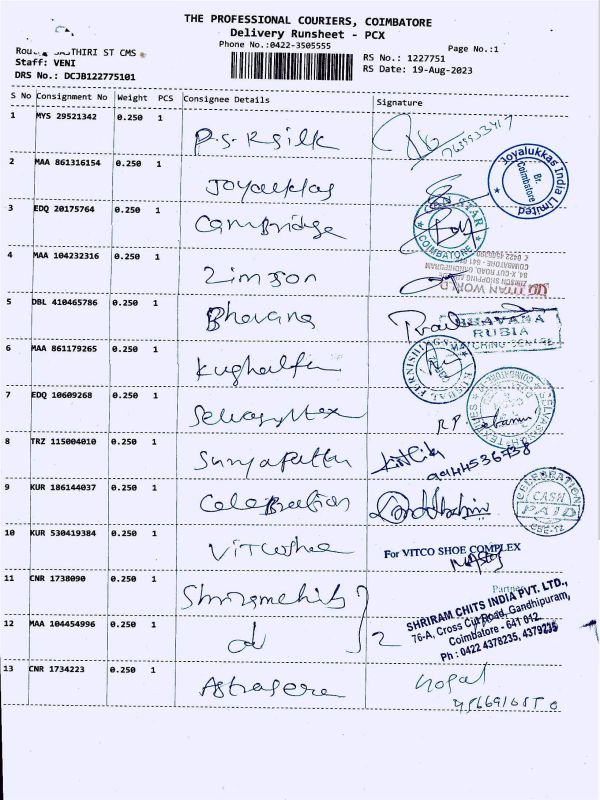 THE PROFESSIONAL COURIERS, COIMBATORE
Delivery Runsheet - PCX
Phone No.:0422-3505555
Page No.:1
ST CMS
Staff: VENI
DRS No.: DCJB122775101
RS No.: 1227751
RS Date: 19-Aug-2023
S No Consignment No Weight PCS Consignee Details Signature
1 MYS 29521342 0.250 1 P.S.R silk
2 MAA 861316154 0.250 1 Joyalukkas
Joyalukkas India Limited
Br. Coimbatore
3 EDQ 20175764 0.250 1 Cambridge
STAR
COIMBATORE
4 MAA 104232316 0.250 1 Zimson
TITAN WORLD
ZIMSON SHOPPING
84, X-CUT ROAD, GANDHIPURAM
COIMBATORE - 641
5 DBL 410465786 0.250 1 Bhavana
BHAVANA
RUBIA
MATCHING CENTRE
6 MAA 861179265 0.250 1
FURNISHINGS
7 EDQ 10609268 0.250 1
8 TRZ 115004010 0.250 1
9944536738
9 KUR 186144037 0.250 1 Celebration
CELEBRATION
CASH
PAID
CBE-12
10 KUR 530419384 0.250 1 Vitcoshoe
For VITCO SHOE COMPLEX
Partner
11 CNR 1738090 0.250 1
12 MAA 104454996 0.250 1 2
SHRIRAM CHITS INDIA PVT. LTD.,
76-A, Cross Cut Road, Gandhipuram,
Coimbatore - 641 012.
Ph : 0422 4378235, 4379235
13 CNR 1734223 0.250 1 Gopal